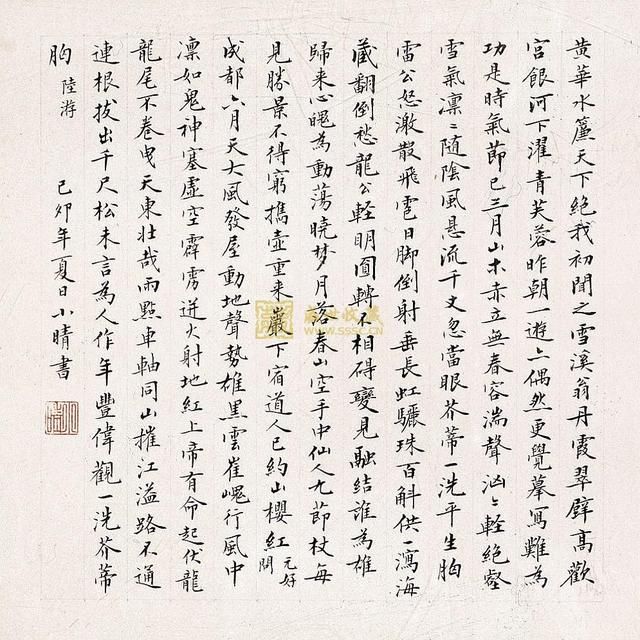 黄華水簾天下絕我初聞之雪溪翁丹霞翠壁高歡
宮銀河下濯青芙蓉昨朝一遊亦偶然更覺摹寫難為
功是時氣節已三月山木赤立無春容湍聲汹〻軽絕壑
雪氣凛〻隨陰風悬流千丈忽當眼芥蒂一洗平生胸
雷公怒激散飛雹日脚倒射垂長虹驪珠百斛供一瀉海
藏翻倒愁龍公軽明圓轉不相碍變見融結誰為雄
歸来心魄為動蕩曉梦月落春山空手中仙人九節杖每
見勝景不得窮攜壺重来巖下宿道人已約山櫻紅 元好問
成都六月天大風發屋動地聲勢雄黑雲崔嵬行風中
凛如鬼神塞虛空霹雳迸火射地紅上帝有命起伏龍
龍尾不卷曳天東壮哉雨點車軸同山摧江溢路不通
連根拔出千尺松未言為人作年豐偉觀一洗芥蒂
胸 陸游 己卯年夏日小晴書
盛世收藏
WWW.SSSC.CN